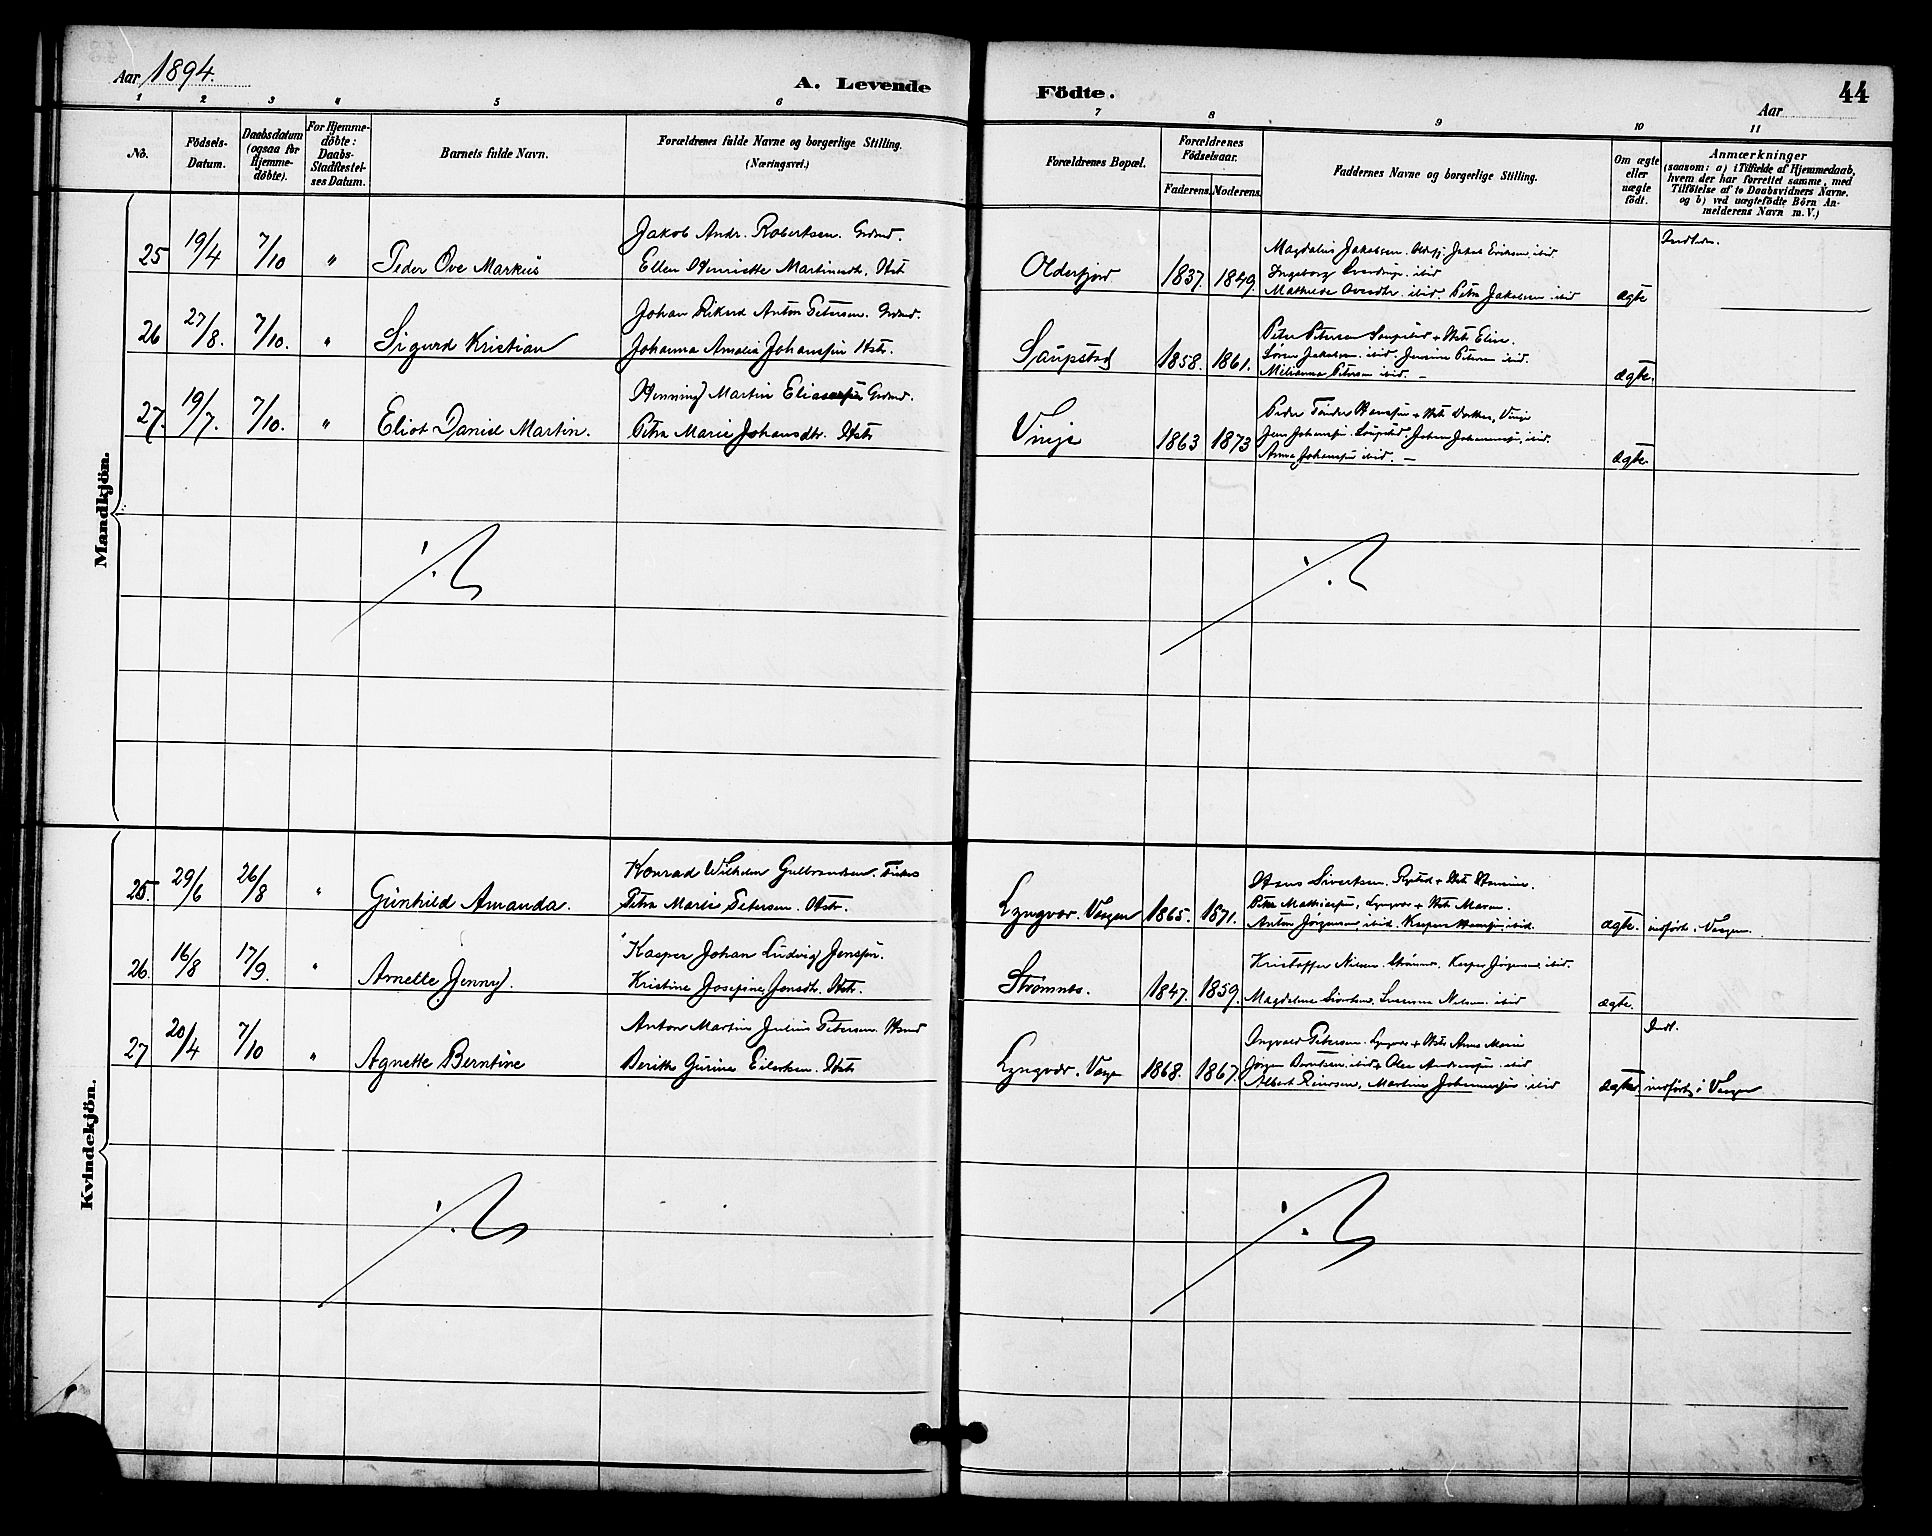 Aar 1894.
A. Levende Födte.
44
Aar
1 2 3 4 5 6 7 8 9 10 11
No.
Födsels-
Datum.
Daabsdatum
(ogsaa for
Hjemme-
döbte).
For Hjemme-
döbte:
Daabs-
Stadfæstel-
ses Datum.
Barnets fulde Navn.
Forældrenes fulde Navne og borgerlige Stilling.
(Næringsvei.)
Forældrenes Bopæl.
Forældrenes
Födselsaar.
Faderens. Moderens.
Faddernes Navne og borgerlige Stilling.
Om ægte
eller
uægte
födt.
Anmærkninger
(saasom: a) i Tilfælde af Hjemmedaab,
hvem der har forrettet samme, med
Tilföielse af to Daabsvidners Navne.
og b) ved uægtefödte Börn An-
melderens Navn m. V.)
Mandkjön.
25 19/4 7/10 " Peder Ove Markus
Jakob Andr. Robertsen. Grdmd.
Ellen Henriette Martinsdtr. Hst
Olderfjord 1837. 1849.
Magdalius Jakobsen. Olderfj. Jakob Eriksen ibid
Ingeborg Sverdrup. ibid
Mathilde ibid. Petra Jakobsen. ibid
ægte
26 27/8. 7/10. " Sigurd Kristian
Johan Rikard Anton Petersen. Grdmd.
Johanna Amalia Johansdtr. Hstr.
Saupstad 1858. 1861.
Peter Petersen Saupstad + Hst. Elise.
Sören Jakobsen. ibid. Petersen ibid.
Petersen ibid. —
ægte.
27. 19/7. 7/10. " Eliot Daniel Martin.
Henning Martin Eliassen Grdmd.
Petra Marie Johansdtr. Hstr
Vinje 1863 1873
Peder Tönder Hansen + Hst. Vinje
Jens Johansen. Saupstad, Johan Johannessen, ibid.
Anna Johansen ibid. —
ægte
Kvindekjön.
25. 29/6 26/8 " Gunhild Amanda.
Konrad Wilhelm Gulbrandsen. Fisker
Petra Marie Petersen. Hstr.
Lyngvær. Vaagan 1865. 1871.
Hans Sivertsen. + Hst.
Peter Mathiassen, Lyngvær + Hst. Maren.
Anton Jørgensen, ibid. Kasper Hansen, ibid.
ægte. indført i Vaagan.
26. 16/8 17/9. " Arnette Jenny.
Kasper Johan Ludvig Jensen.
Kristine Josefine Jonsdtr. Hstr.
Strømnes. 1847. 1859.
Kristoffer Nilsen. Strømnes. Kasper Jørgensen, ibid.
Magdalena Nilsen. ibid
ægte.
27 20/4 7/10 " Agnette Berntine
Anton Martin Julius Petersen. Hsmd
Berith Gurine Eilertsen. Hstr
Lyngvær. Vaagan 1868. 1867.
Ingvald Petersen. Lyngvær + Hst. Anna Marie
Jørgen Berntsen, ibid + Olea Andreassen. ibid
Albert Einersen, Martine Johannessen. ibid
ægte
Indl.
indført i Vaagan